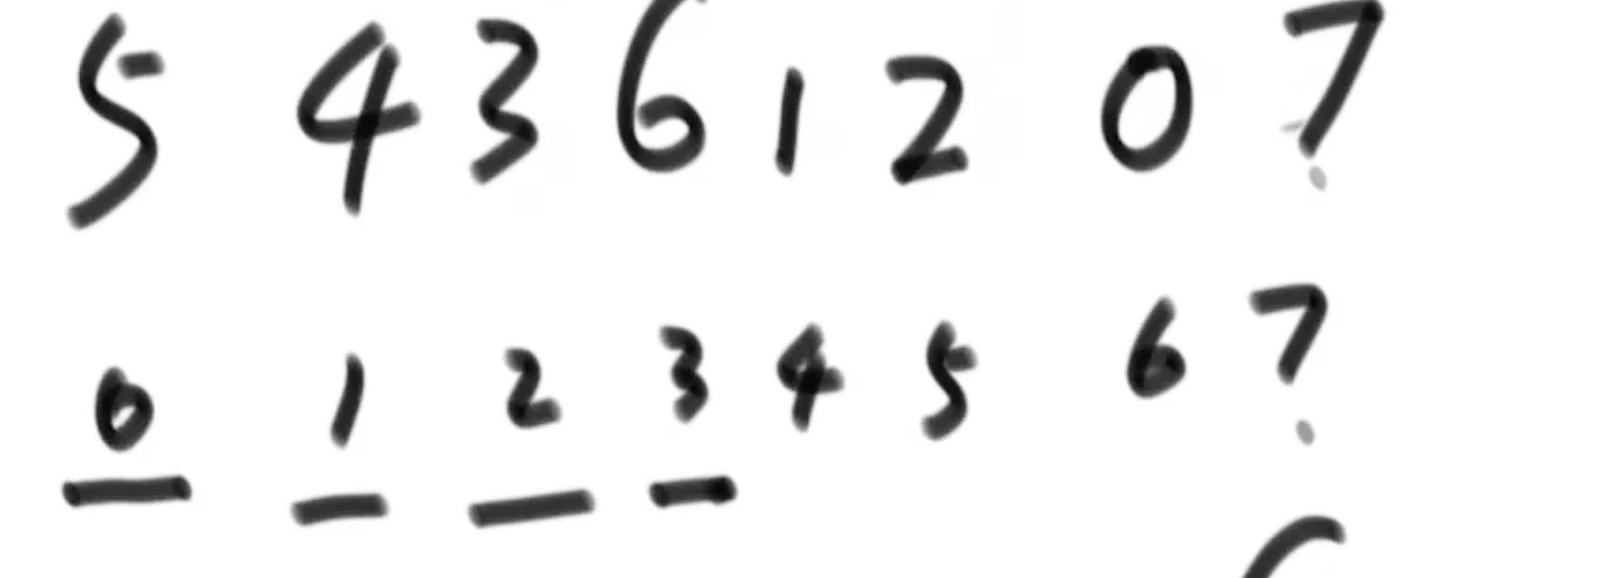 5 4 3 6 1 2 0 7
0 1 2 3 4 5 6 7